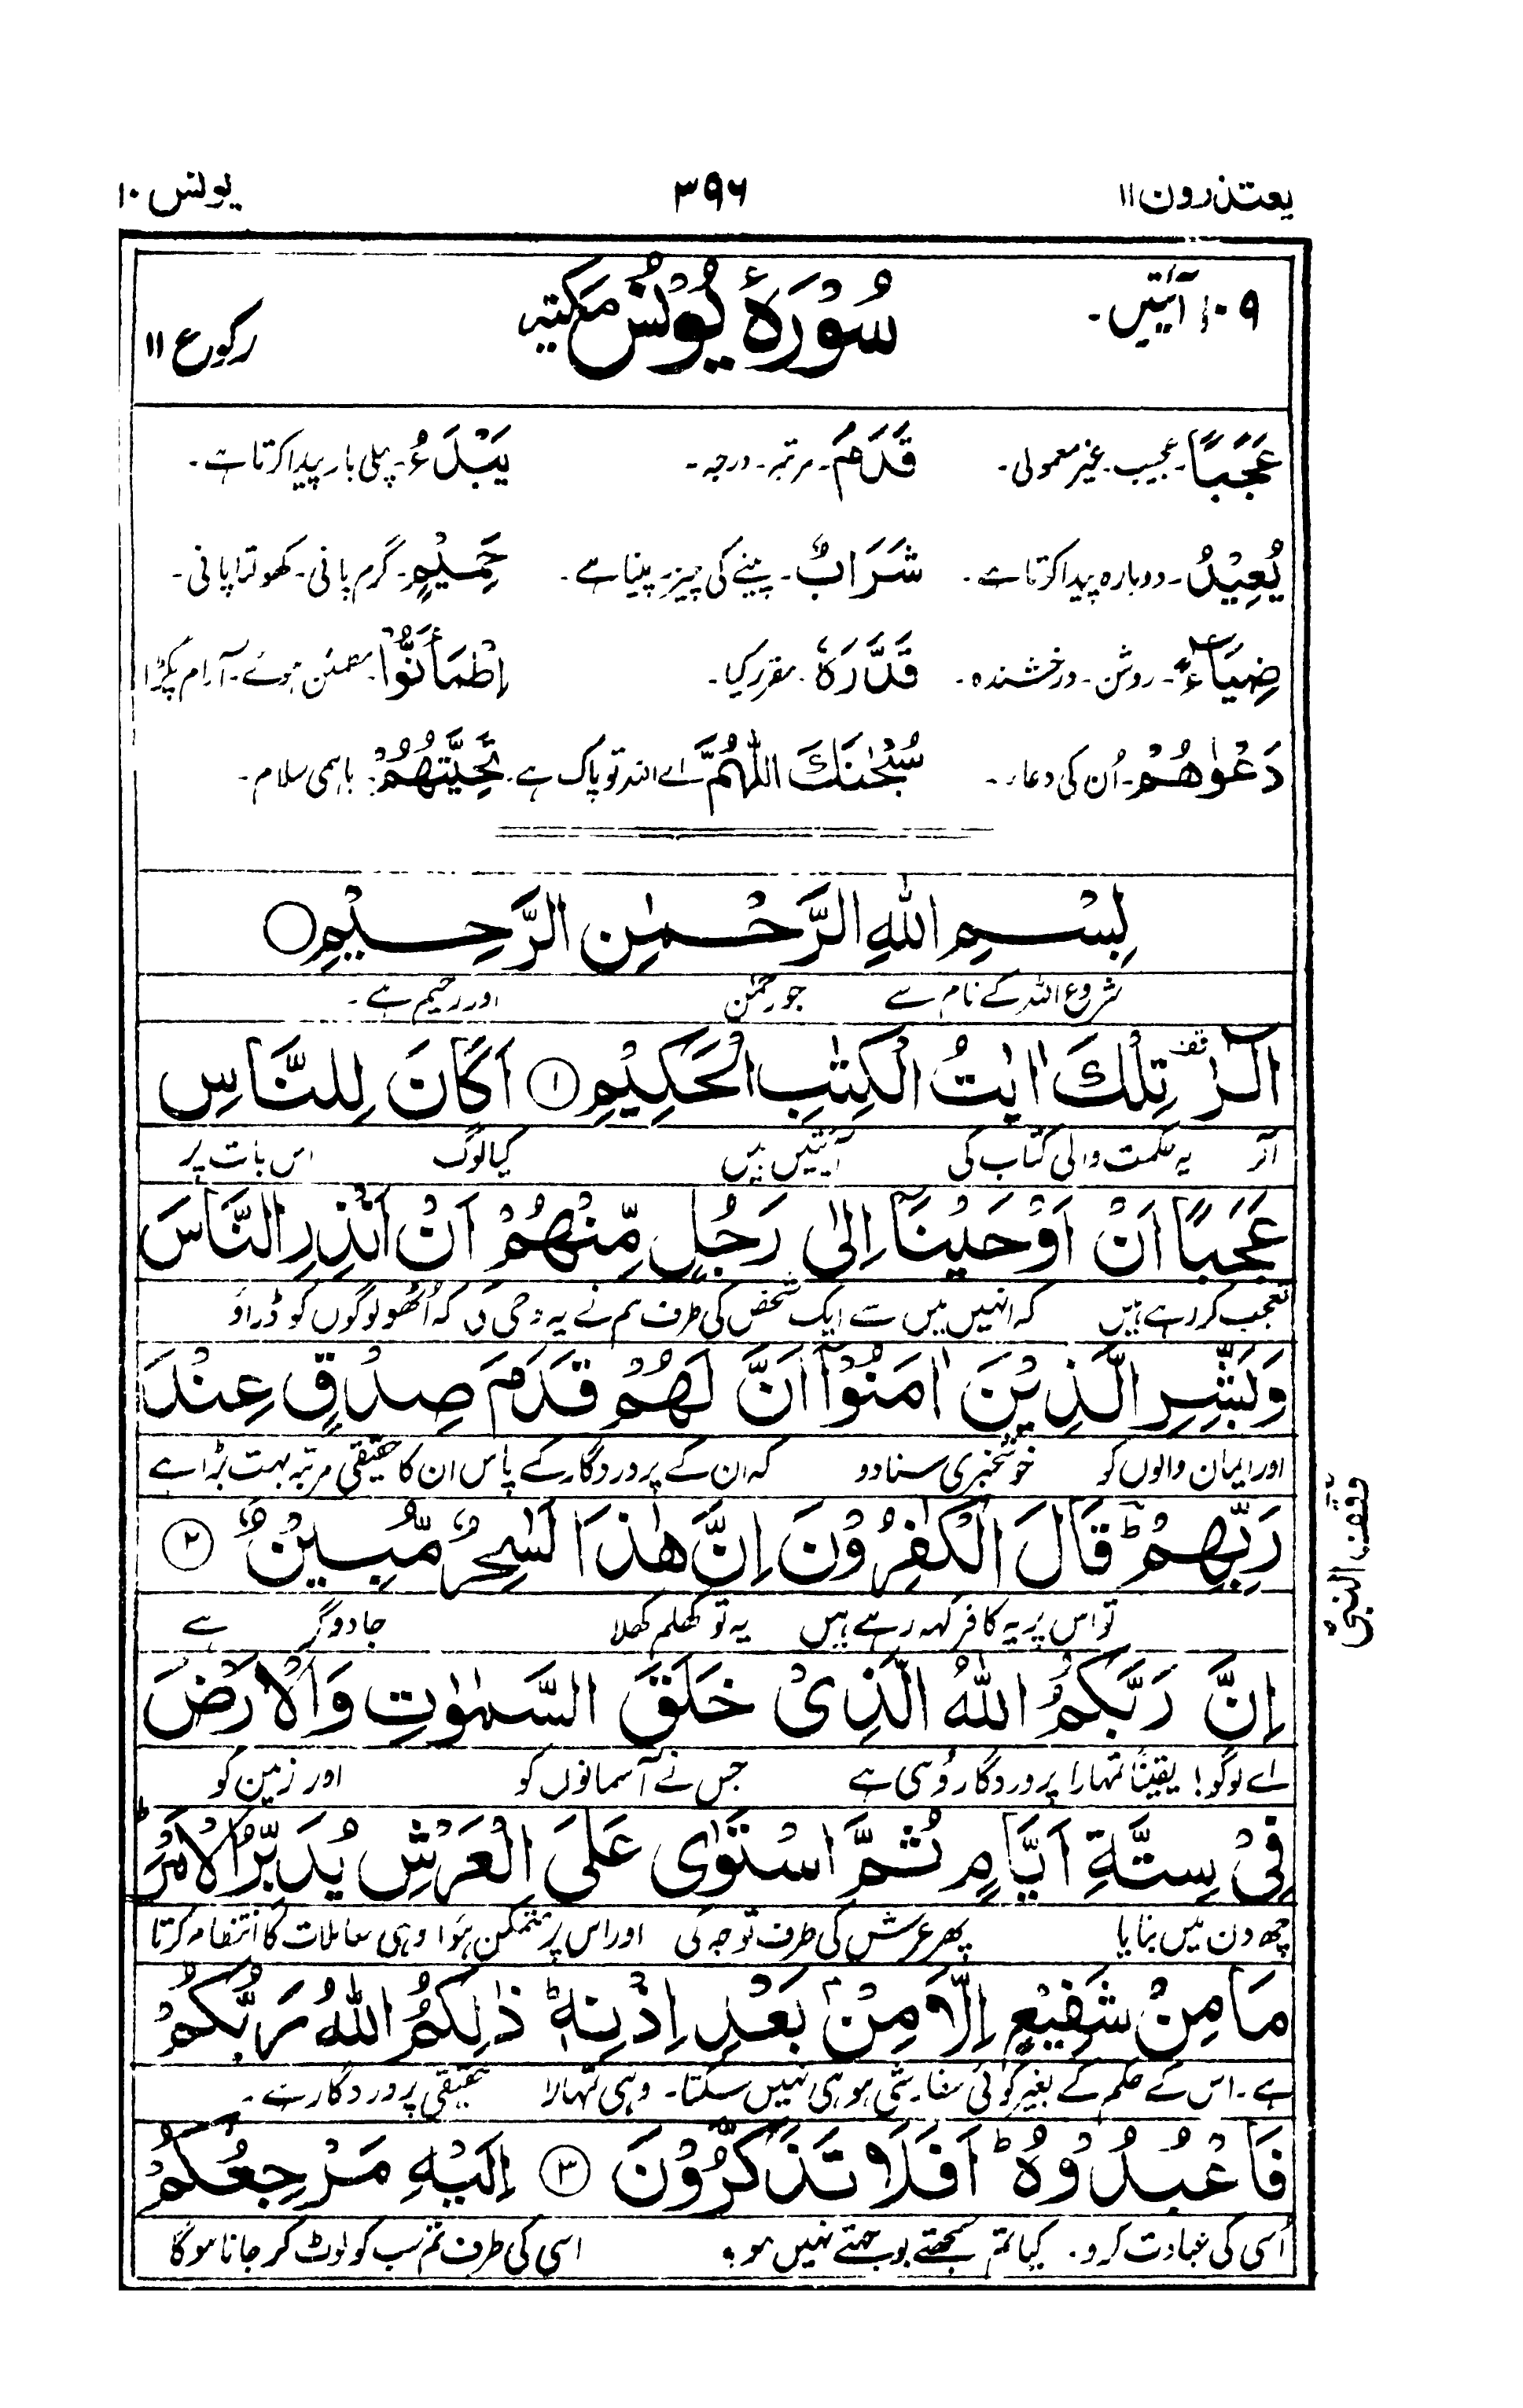 یعتذرون ۱۱ ۳۹۶ یونس ۱۰
۱۰۹ آیتیں۔ سُوْرَۃُ یُوْنُسَ مکیۃ رکوع ۱۱
عَجَبًا۔ عجیب۔ غیر معمولی۔ قَدَمَ۔ مرتبہ۔ درجہ۔ یَبْدَءُ۔ پہلی بار پیدا کرتا ہے۔
یُعِیْدُ۔ دوبارہ پیدا کرتا ہے۔ شَرَابٌ۔ پینے کی چیز۔ پینا ہے۔ حَمِیْمٍ۔ گرم پانی۔ کھولتا پانی۔
ضِیَآءً۔ روشن۔ درخشندہ۔ قَدَّرَہٗ۔ مقرر کیا۔ اِطْمَاَنُّوْا۔ مطمئن ہوئے۔ آرام پکڑا
دَعْوٰىهُمْ۔ اُن کی دعاء۔ سُبْحٰنَكَ اللّٰهُمَّ اے اللہ تو پاک ہے۔ تَحِیَّتُهُمْ۔ باہمی سلام۔
بِسْمِ اللّٰهِ الرَّحْمٰنِ الرَّحِیْمِ
شروع اللہ کے نام سے جو رحمٰن اور رحیم ہے۔
الٓرٰ تِلْكَ اٰیٰتُ الْكِتٰبِ الْحَكِیْمِ ۱ اَكَانَ لِلنَّاسِ
آلر یہ حکمت والی کتاب کی آیتیں ہیں کیا لوگ اس بات پر
عَجَبًا اَنْ اَوْحَیْنَاۤ اِلٰى رَجُلٍ مِّنْهُمْ اَنْ اَنْذِرِ النَّاسَ
تعجب کر رہے ہیں کہ انہیں میں سے ایک شخص کی طرف ہم نے یہ وحی کی کہ اُٹھو لوگوں کو ڈراؤ
وَبَشِّرِ الَّذِیْنَ اٰمَنُوْۤا اَنَّ لَهُمْ قَدَمَ صِدْقٍ عِنْدَ
اور ایمان والوں کو خوشخبری سنا دو کہ ان کے پروردگار کے پاس ان کا حقیقی مرتبہ بہت بڑا ہے
رَبِّهِمْ ؕ قَالَ الْكٰفِرُوْنَ اِنَّ هٰذَا لَسٰحِرٌ مُّبِیْنٌ ۲
تو اس پر یہ کافر کہہ رہے ہیں یہ تو کھلم کھلا جادوگر ہے
وقف النبیؐ
اِنَّ رَبَّكُمُ اللّٰهُ الَّذِیْ خَلَقَ السَّمٰوٰتِ وَالْاَرْضَ
اے لوگو! یقیناً تمہارا پروردگار وُہی ہے جس نے آسمانوں کو اور زمین کو
فِیْ سِتَّةِ اَیَّامٍ ثُمَّ اسْتَوٰى عَلَى الْعَرْشِ یُدَبِّرُ الْاَمْرَ ؕ
چھ دن میں بنایا پھر عرش کی طرف توجہ کی اور اس پر متمکن ہؤا وہی معاملات کا انتظام کرتا
مَا مِنْ شَفِیْعٍ اِلَّا مِنْۢ بَعْدِ اِذْنِهٖ ؕ ذٰلِكُمُ اللّٰهُ رَبُّكُمْ
ہے۔ اس کے حکم کے بغیر کوئی سفارشی ہو ہی نہیں سکتا۔ وہی تمہارا حقیقی پروردگار ہے۔
فَاعْبُدُوْهُ ؕ اَفَلَا تَذَكَّرُوْنَ ۳ اِلَیْهِ مَرْجِعُكُمْ
اُسی کی عبادت کرو۔ کیا تم سمجھتے بوجھتے نہیں ہو؟ اسی کی طرف تم سب کو لوٹ کر جانا ہوگا